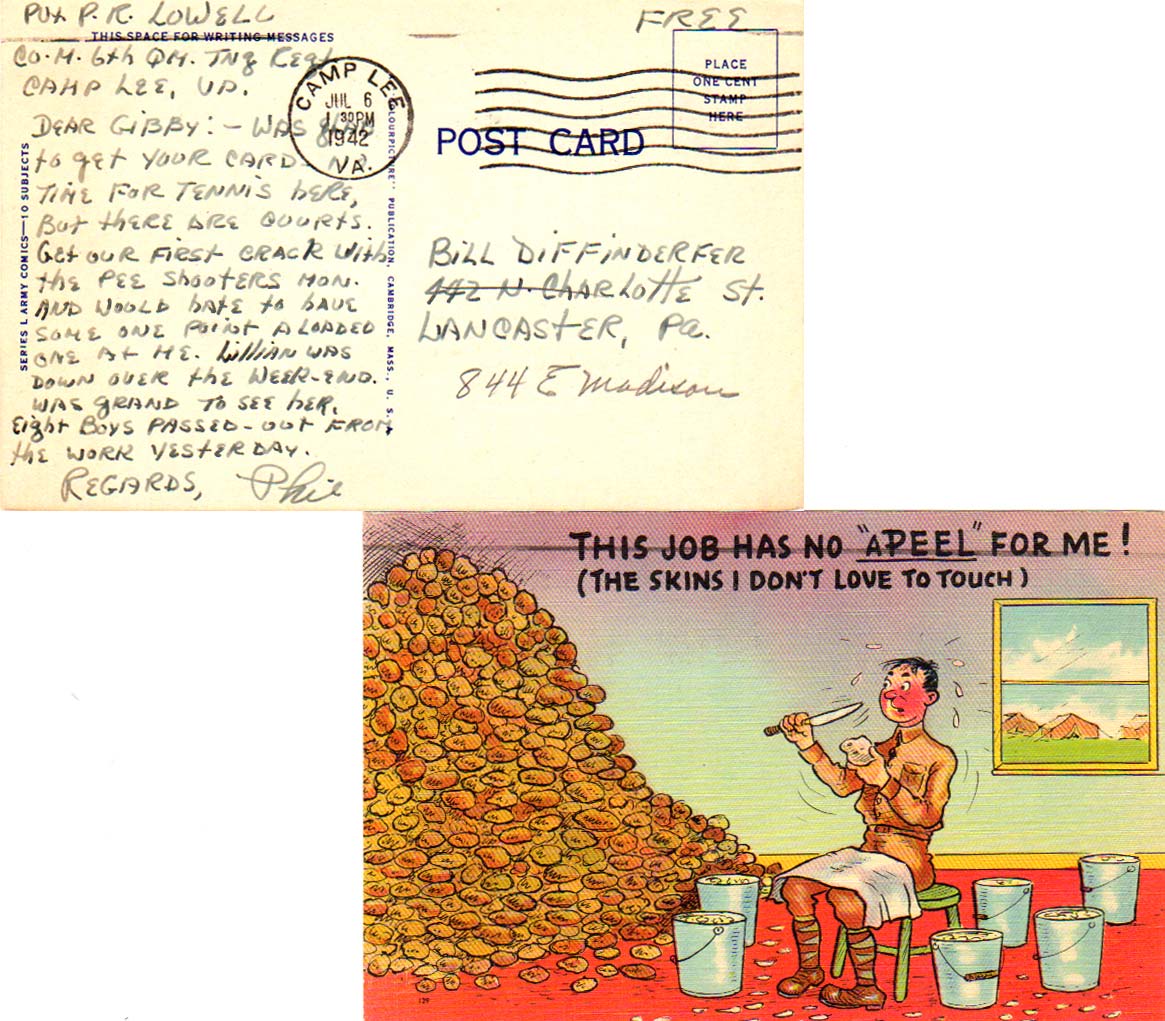 Pvt P. R. LOWELL
FREE
THIS SPACE FOR WRITING MESSAGES
Co. M. 6th QM. TNg Regt
CAMP LEE, VA.
PLACE
ONE CENT
STAMP
HERE
CAMP LEE
JUL 6
1 30PM
1942
VA.
POST CARD
DEAR GIBBY:- WAS GLAD
to get YOUR CARD. NO
TIME FOR TENNIS HERE,
BUt tHERE ARE COURTS.
Get OUR FIRST CRACK With
the PEE SHOOTERS MON.
AND WOULD HATE to HAVE
SOME ONE POINT A LOADED
ONE At ME. Lillian WAS
DOWN OVER the WEEK-END.
WAS GRAND TO SEE HER.
Eight BOYS PASSED-OUT FROM
the WORK YESTERDAY.
REGARDS, Phil
SERIES L ARMY COMICS—10 SUBJECTS
"COLOURPICTURE" PUBLICATION, CAMBRIDGE, MASS., U. S. A.
BILL DIFFINDERFER
442 N. CHARLOttE St.
LANCASTER, Pa.
844 E Madison
THIS JOB HAS NO "APEEL" FOR ME!
(THE SKINS I DON'T LOVE TO TOUCH)
139